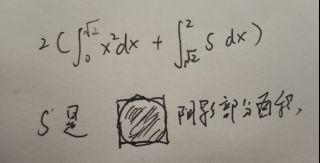 2(∫₀^√2 x²dx + ∫_√2^2 S dx)
S 是 阴影部分面积,